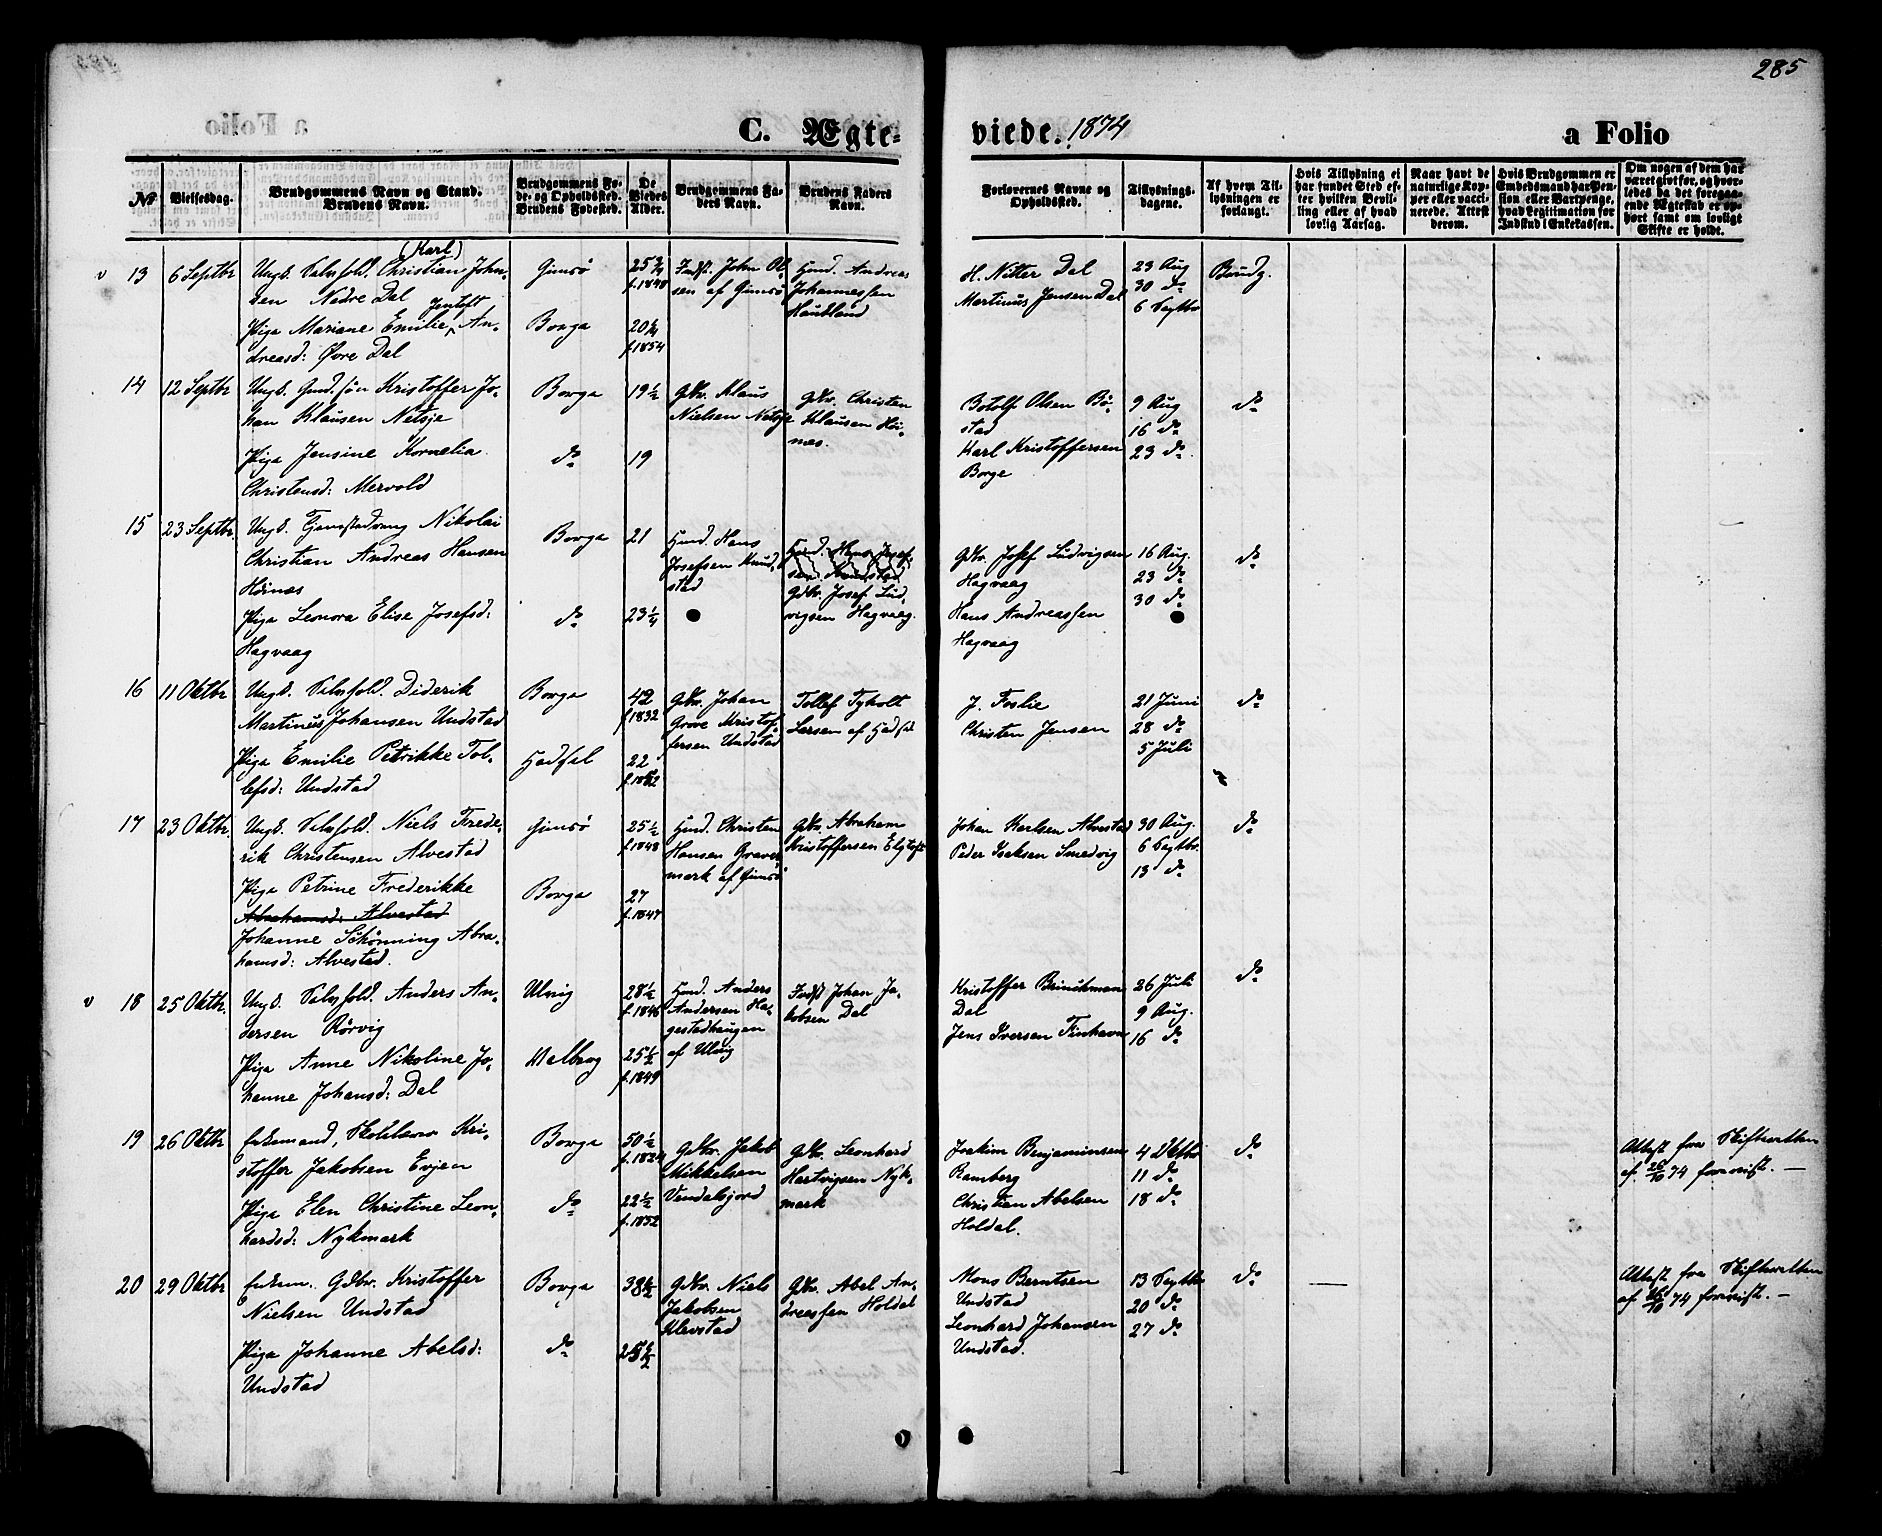 285
C. Ægte-
viede. 1874
a Folio
No
Vielsesdag.
Brudgommens Navn og Stand.
Brudens Navn.
Brudgommens Fø-
de- og Opholdssted.
Brudens Fødested.
De
Viedes
Alder.
Brudgommens Fa-
ders Navn.
Brudens Faders
Navn.
Forlovernes Navne og
Opholdssted.
Tillysnings-
dagene.
Af hvem Til-
lysningen er
forlangt.
Hvis Tillysning ei
har fundet Sted ef-
ter hvilken Bevil-
ling eller af hvad
lovlig Aarsag.
Naar havt de
naturlige Kop-
per eller vacci-
nerede. Attest
derom.
Hvis Brudgommen er
Embedsmand har Pen-
sion eller Vartpenge,
hvad Legitimation for
Indskud i Enkekassen.
Om nogen af dem har
været givt før, og hvor-
ledes da det foregaa-
ende Ægteskab er op-
hørt samt om lovligt
Skifte er holdt.
v 13
6 Septbr
(Karl)
Ungk. Selvfold. Christian John-
sen Nedre Dal
Jentoft
Pige Mariane Emilie, An-
dreasd: Øvre Dal
Gimsø
Borge
25 3/4
f.1848
20 1/4
f.1854
Indst. John Ol-
sen af Gimsø
Huusm. Andreas
Johannessen
Haukland
H. Nitter Dal
Martinus Jensen Dal
23 Aug
30 do
6 Septbr
Brudg.
14
12 Septbr
Ungk. Gmd. søn Kristoffer Jo-
han Klausen Netsje
Pige Jensine Kornelia
Christensd: Mervold
Borge
do
19 1/2
19
Gbr. Klaus
Nielsen Netsje
Gbr. Christen
Klausen Høi-
næs.
Botolf Olsen Bø-
stad
Karl Kristoffersen
Borge
9 Aug
16 do
23 do
do
15
23 Septbr
Ungk. Nikolai
Christian Andreas Hansen
Høinæs
Pige Leonora Elise Josefsd:
Hagvaag
Borge
do
21
23 1/4
Huusm. Hans
Josefsen Und-
stad
Huusm. Hans Josef-
sen Undstad
Gbr. Josef Lud-
vigsen Hagvaag.
Gbr. Josef Ludvigsen
Hagvaag
Hans Andreassen
Hagvaag
16 Aug.
23 do
30 do
do
16
11 Oktbr
Ungk. Selvfold. Diderik
Martinus Johansen Undstad
Pige Emilie Petrikke Tol-
lefsd: Undstad
Borge
Hadsel
42
f.1832
22
f.1852
Gbr. Johan
Grove Kristof-
fersen Undstad
Tollef Tyholt
Larsen af Hadsel
J. Foslie
Christen Jensen
21 Juni
28 do
5 Juli
do
17
23 Oktbr.
Ungk. Selvfold. Niels Frede-
rik Christensen Alvestad
Pige Petrine Frederikke
Abrahamsd: Alvestad
Johanne Schønning Abra-
hamsd: Alvestad.
Gimsø
Borge
25 1/2
f.1848
27
f.1847
Huusm. Christen
Hansen Graver-
mark af Gimsø
Gbr. Abraham
Kristoffersen Elgtoft
Johan Karlsen Alvestad
Peder Isaksen Smedvig
30 Aug.
6 Septbr.
13 do
do
v 18
25 Oktbr.
Ungk. Selvfold. Anders An-
dersen Rørvig
Pige Anne Nikoline Jo-
hanne Johansd: Dal
Ulvig
Valberg
28 1/2
f.1846
25 1/2
f.1849
Huusm. Anders
Andersen Ha-
gestadhaugen
af Ulvig
Indst Johan Ja-
kobsen Dal
Kristoffer Brinchman
Dal
Jens Iversen Finhavn
26 Juli
9 Aug.
16 do
do
19
26 Oktbr
Enkemand, Skolelærer Kri-
stoffer Jakobsen Evjen
Pige Elen Christine Leon-
hardsd: Nykmark
Borge
do
50 1/2
f.1824
22 1/2
f.1852
Gbr. Jakob
Mikkelsen
Vendalsjord
Gbr. Leonhard
Hartvigsen Nyk-
mark
Joakim Benjaminsen
Ramberg
Christian Abelsen
Holdal.
4 Oktbr
11 do
18 do
do
Attest fra Skifteretten
af 26/10 74 forevist. —
20
29 Oktbr
Enkem. Gdbr. Kristoffer
Nielsen Undstad
Pige Johanne Abelsd:
Undstad
Borge
do
38 1/2
25 1/2
Gbr. Niels
Jakobsen
Klevstad
Gbr. Abel An-
dreassen Holdal
Mons Berntsen
Undstad
Leonhard Johansen
Undstad.
13 Septbr
20 do
27 do
do
Attest fra Skifteretten
af 26/10 74 forevist. —